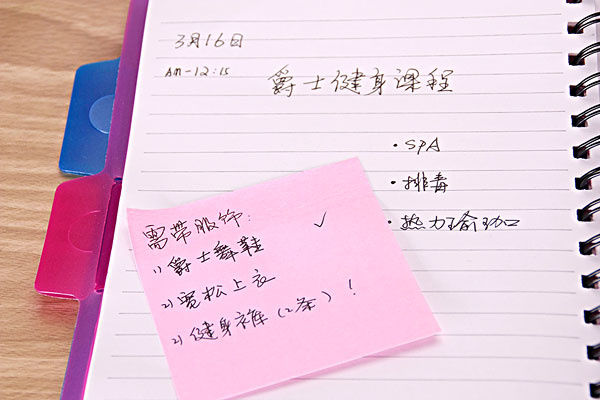 3月16日
AM-12:15
爵士健身课程
·SPA
·排毒
·热力瑜珈
需带服饰:
1)爵士舞鞋 ✓
2)宽松上衣
2)健身裤(2条)!